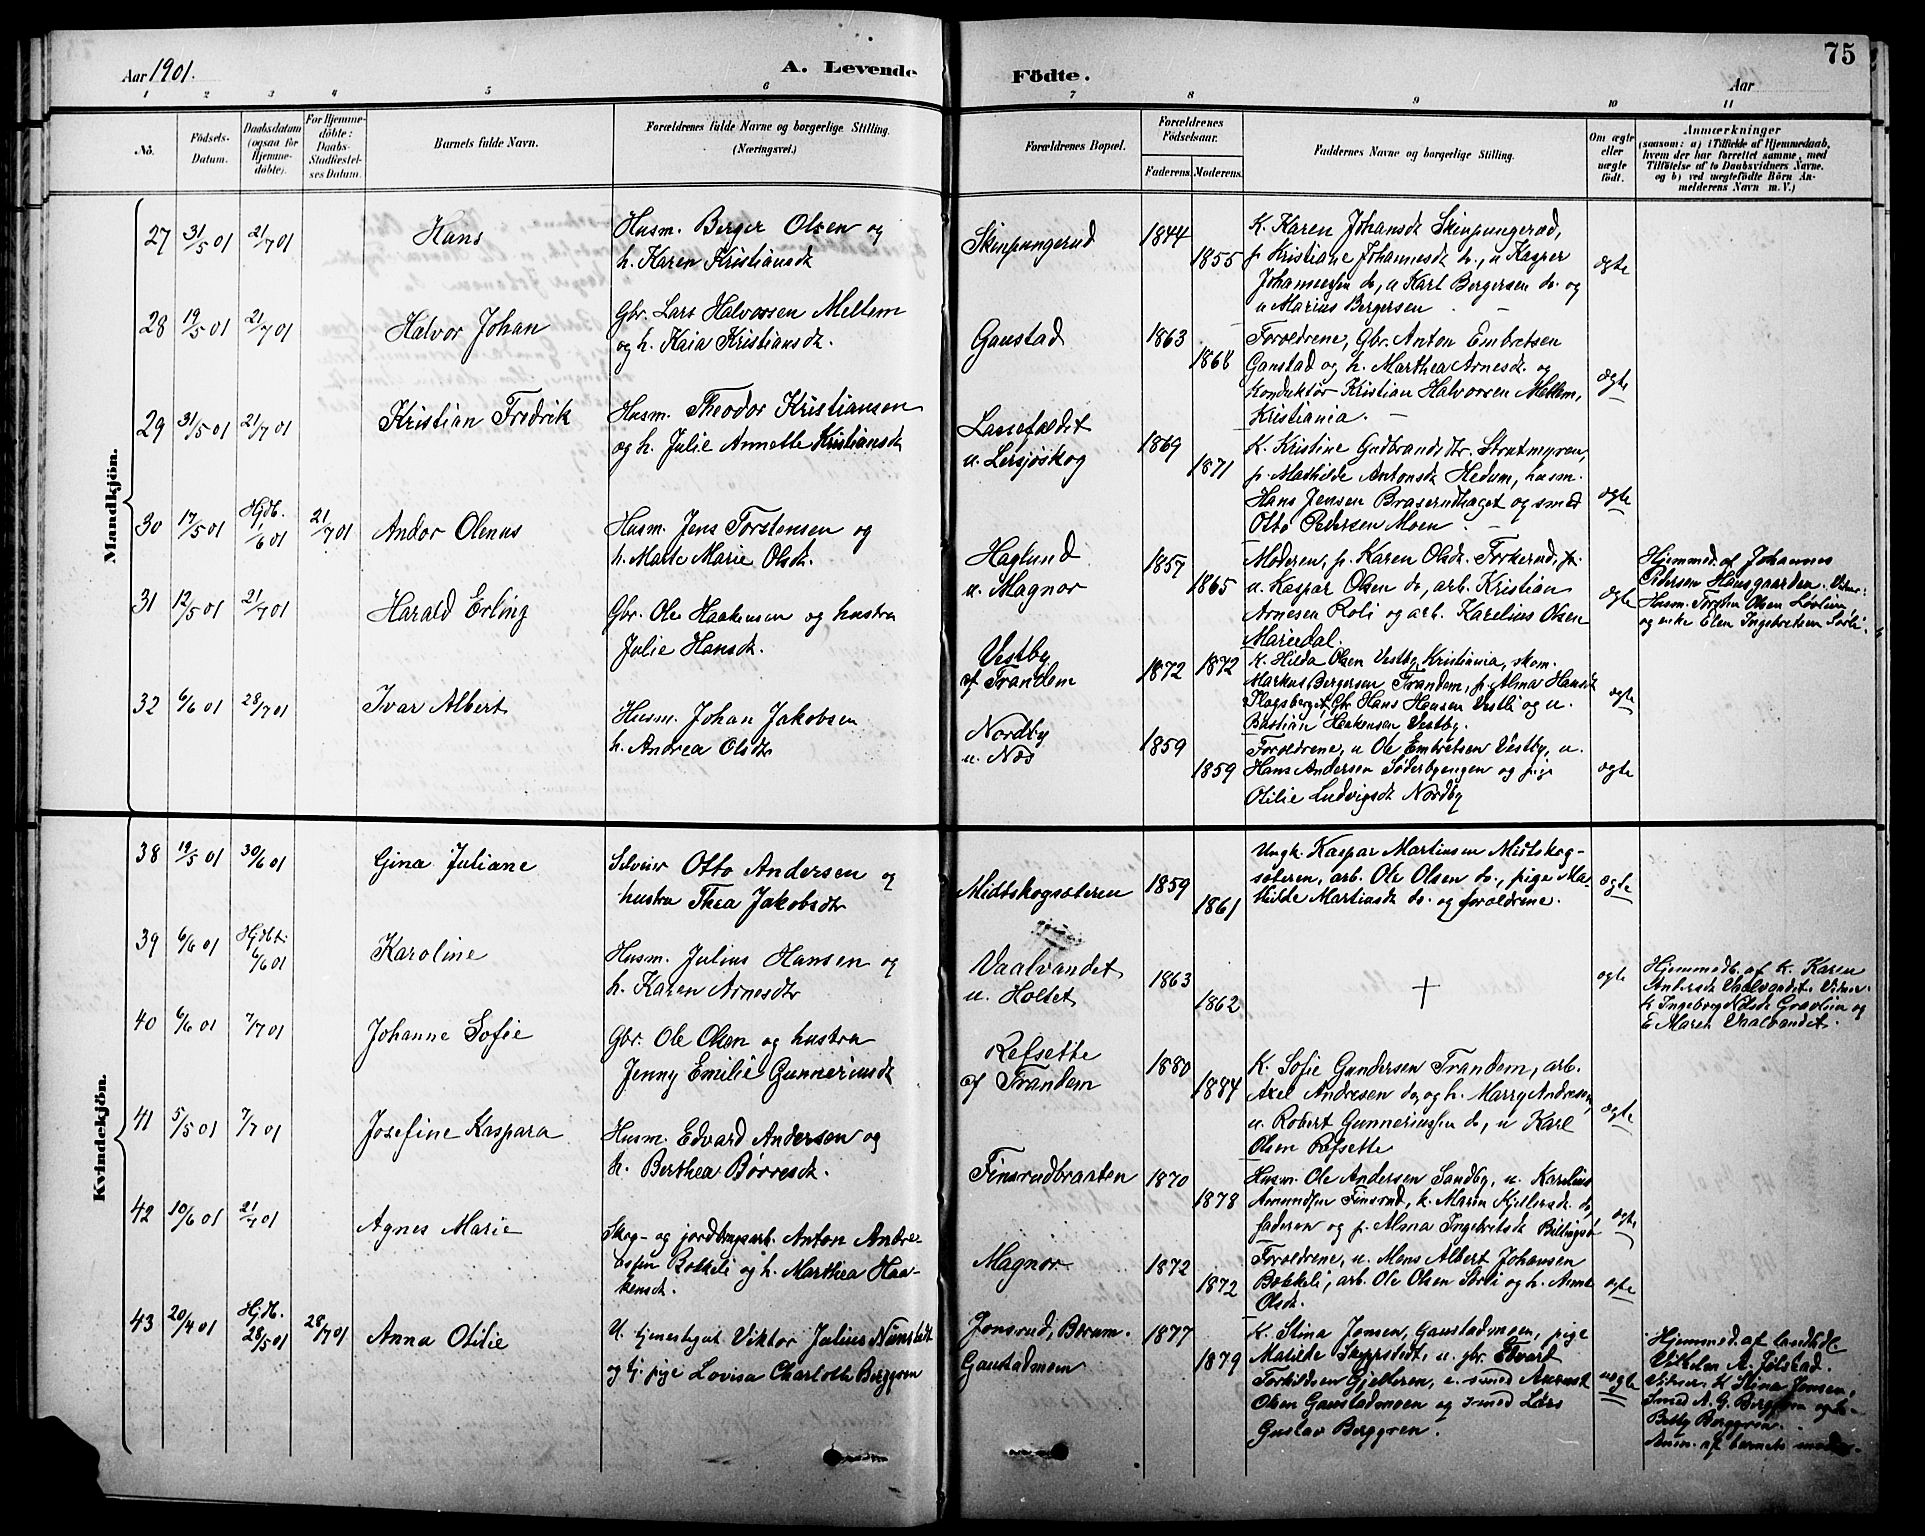 Aar 1901.
A. Levende
Födte.
Aar
75
1 2 3 4 5 6 7 8 9 10 11
No.
Födsels-Datum.
Daabsdatum (ogsaa for Hjemmedöbte).
For Hjemmedöbte: Daabs-Stadfæstelses Datum.
Barnets fulde Navn.
Forældrenes fulde Navne og borgerlige Stilling.
(Næringsvei.)
Forældrenes Bopæl.
Forældrenes Födselsaar.
Faderens. Moderens.
Faddernes Navne og borgerlige Stilling.
Om ægte eller uægte født.
Anmærkninger
(saasom: a) i Tilfælde af Hjemmedaab,
hvem der har forrettet samme, med
Tilföielse af to Daabsvidners Navne.
og b) ved uægtefödte Börn An-
melderens Navn m. V.)
Mandkjön.
27 31/5 01 21/7 01 Hans
Husm. Berger Olsen og
h. Karen Kristiansdt
Skinpungerud 1844 1855
K. Karen Johansdt Skinpungerud,
p. Kristiane Johannesdt do., u Kasper
Johannessen do, u Karl Bergersen do. og
u Marius Bergersen
ægte
28 19/5 01 21/7 01 Halvor Johan
Gbr. Lars Halvorsen Mellem
og h. Kaia Kristiansdt.
Gaustad 1863 1868
Forældrene, Gbr. Anton Embretsen
Gaustad og h. Marthea Arnesdt. og
Konduktør Kristian Halvorsen Mellem,
Kristiania.
ægte
29 31/5 01 21/7 01 Kristian Fredrik
Husm. Theodor Kristiansen
og h. Julie Annette Kristiansdt
Lassefaldet
u. Lersjøskog 1869 1871
K. Kristine Gudbrandsdtr. Strætmyren,
p. Mathilde Antonsdt Hedum, husm.
Hans Jensen Braserudhaget og smed
Otto Pedersen Moen
ægte
30 17/5 01 Hjdb. 1/6 01 21/7 01 Andor Olenus
Husm. Jens Torstensen og
h. Matte Marie Olsdt.
Haglund
u. Magnor 1857 1865
Moderen, p. Karen Olsdt. Torkerud,
u. Kaspar Olsen do, arb. Kristian
Arnesen Roli og arb. Karelius Olsen
Mariedal.
ægte
Hjemmed. af Johannes
Pedersen Mansgaarden. Vidner:
Husm. Torsten Olsen Løvlien,
og enke Elen Ingebretsen Sørli.
31 12/5 01 21/7 01 Harald Erling
Gbr. Ole Haakensen og hustru
Julie Hansdt.
Vestby
af Trandem 1872 1872
K. Hilda Olsen Vestby, Kristiania, skom.
Markus Bergersen Trandem, p. Alma Hansdt
Plagsberget, Gbr. Hans Hansen Vestli og u.
Bastian Haakensen Vestby.
ægte
32 6/6 01 28/7 01 Ivar Albert
Husm. Johan Jakobsen
h. Andrea Olsdtr
Nordby
u. Næs 1859 1859
Forældrene, u Ole Embretsen Vestby, u.
Hans Andersen Søderbyengen og pige
Otilie Ludvigsdt Nordby
ægte
Kvindekjön.
38 19/5 01 30/6 01 Gina Juliane
Selveier Otto Andersen og
hustru Thea Jakobsdtr
Midtskogsæteren 1859 1861
Ungk. Kaspar Martinsen Midtskog-
sæteren, arb. Ole Olsen do., pige Ma-
thilde Martinsdt do. og forældrene.
ægte
39 6/6 01 Hjdbt. 6/6 01 Karoline
Husm. Julius Hansen og
h. Karen Arnesdtr
Vaalvandet
u. Holtet 1863 1862
+
ægte
Hjemmedb. af K. Karen
Andersdt Vaalvandet. Vidner:
K Ingeborg Nilsdt Gravlien og
E. Maren Vaalvandet.
40 6/6 01 7/7 01 Johanne Sofie
Gbr. Ole Olsen og hustru
Jenny Emilie Gunneriusdt
Refsette
af Trandem 1880 1884
K. Sofie Gundersen Trandem, arb.
Axel Andresen do, og h. Marry Andresen,
u. Robert Gunneriussen do, u Karl
Olsen Refsette
ægte
41 5/5 01 7/7 01 Josefine Kaspara
Husm. Edvard Andersen og
h. Berthea Børresdt.
Finsrudbraaten 1870 1878
Husm. Ole Andersen Sandby, u. Karelius
Amundsen Finsrud, k. Maren Kjellesdt do,
faderen og p. Alma Ingebretsdt Billingsø
ægte
42 10/6 01 21/7 01 Agnes Marie
Skog- og jordbrugsarb. Anton Andre-
assen Bækkeli og h. Marthea Haa-
kensdt.
Magnor 1872 1872
Forældrene, u. Mons Albert Johansen
Bækkeli, arb. Ole Olsen Sørli og h. Anne
Olsdt.
ægte
43 20/4 01 Hjdb. 28/5 01 28/7 01 Anna Otilie
U. tjenestegut Viktor Julius Nimstedt
og tj. pige Lovisa Charlotte Berggren
Jonsrud, Bærum.
Gaustadmoen 1877 1879
K. Stina Jonsen, Gaustadmoen, pige
Matilde Skeppstedt, u. gbr. Edvard
Torkildsen Gjelteren, e. smed August
Olsen Gaustadmoen og smed Lars
Gustav Berggren.
uægte
Hjemmed. af landhdl.
Vilhelm A. Jølstad.
Vidner: K. Stina Jonsen,
Smed A. G. Berggren og
Betty Berggren.
Anm. af barnets moder.